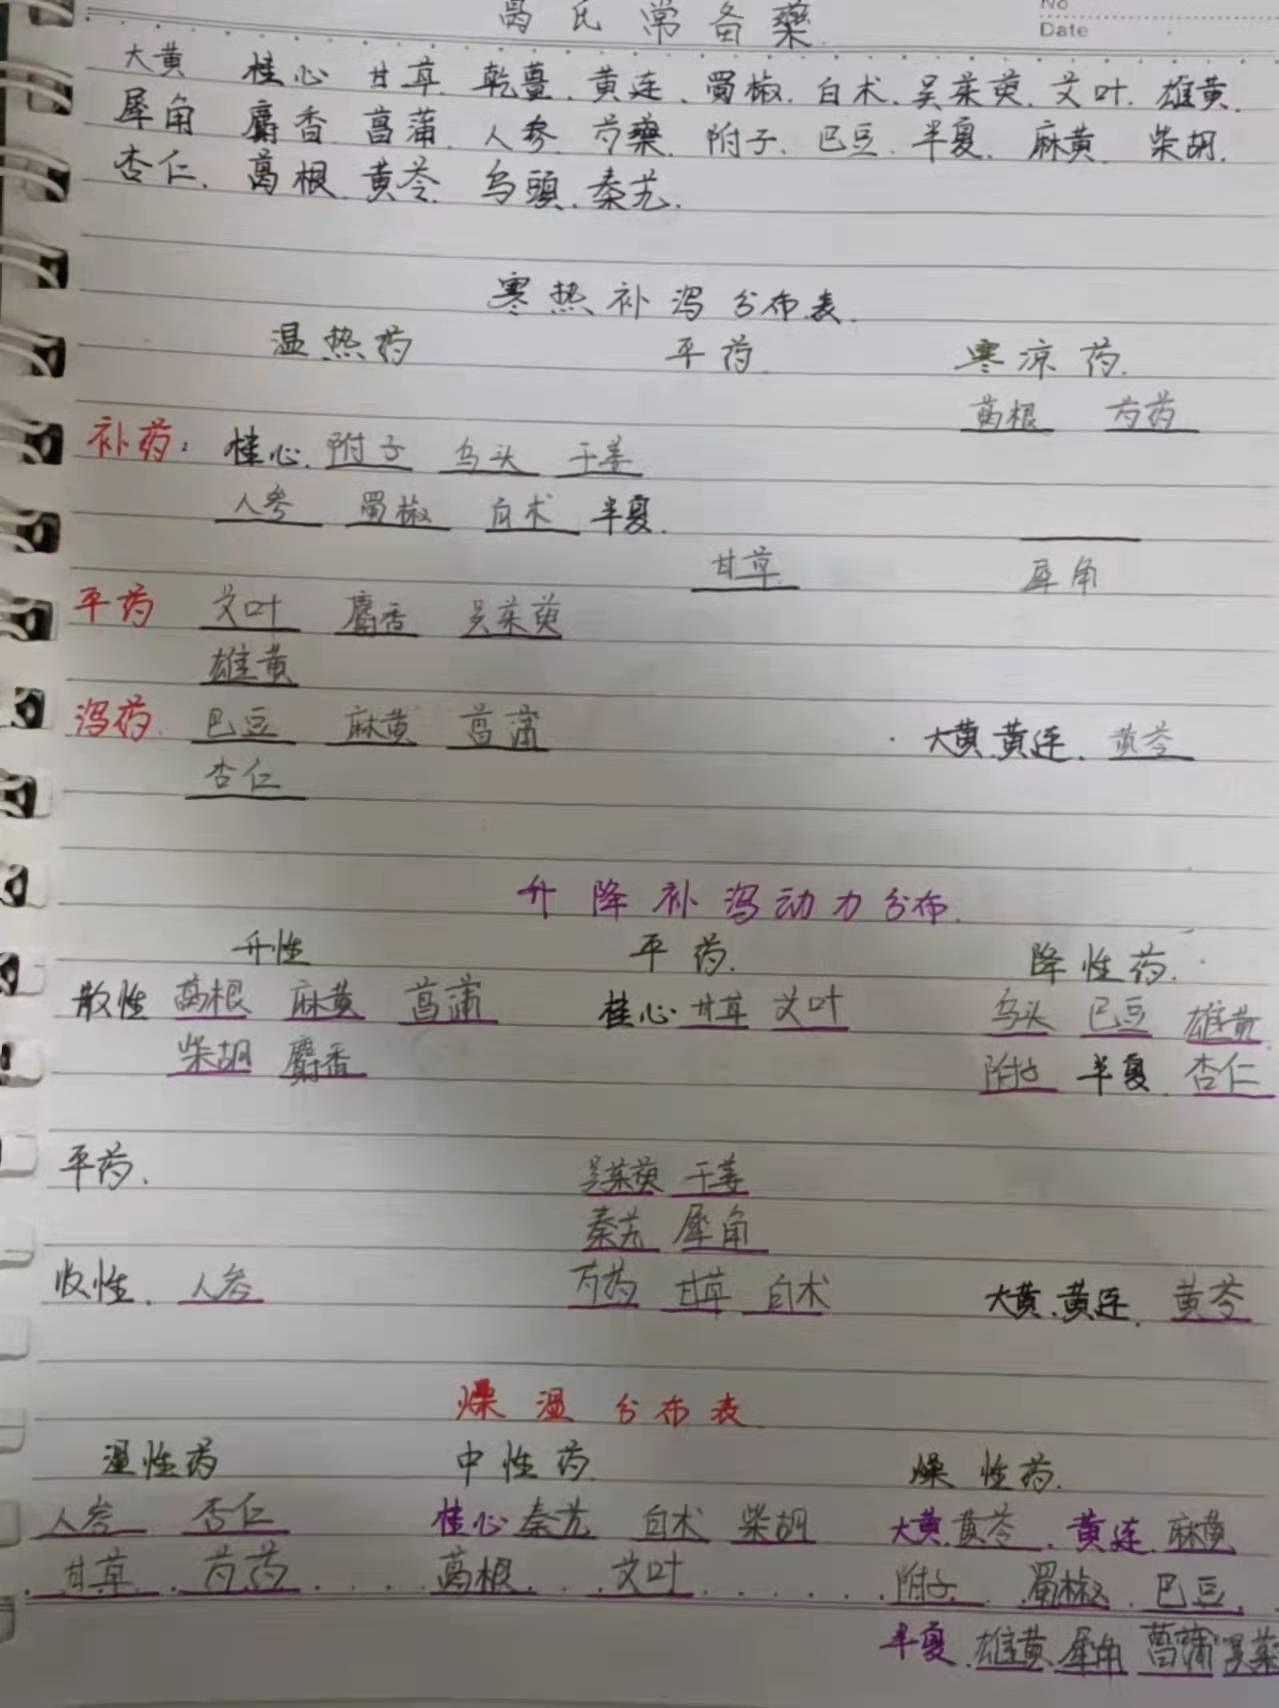 葛氏常备藥
No
Date
大黄 桂心 甘草 乾薑. 黄连. 蜀椒. 白术. 吴茱萸. 艾叶. 雄黄.
犀角 麝香 菖蒲. 人参. 芍藥. 附子. 巴豆. 半夏. 麻黄. 柴胡.
杏仁. 葛根. 黄芩. 乌頭. 秦艽.
寒热补泻分布表.
温热药 平药 寒凉药.
葛根 芍药
补药: 桂心. 附子 乌头 干姜
人参 蜀椒 白术 半夏.
甘草 犀角
平药 艾叶 麝香 吴茱萸
雄黄
泻药. 巴豆 麻黄 菖蒲 大黄.黄连. 黄芩
杏仁
升降补泻动力分布.
升性 平药. 降性药.
散性 葛根 麻黄 菖蒲 桂心 甘草 艾叶 乌头 巴豆 雄黄
柴胡 麝香 附子 半夏. 杏仁
平药. 吴茱萸 干姜
秦艽 犀角
收性. 人参 芍药 甘草 白术 大黄.黄连. 黄芩
燥湿分布表
湿性药 中性药 燥性药.
人参 杏仁 桂心 秦艽 白术 柴胡 大黄.黄芩. 黄连 麻黄
甘草 芍药 葛根 艾叶 附子 蜀椒 巴豆
半夏.雄黄 犀角 菖蒲 吴茱